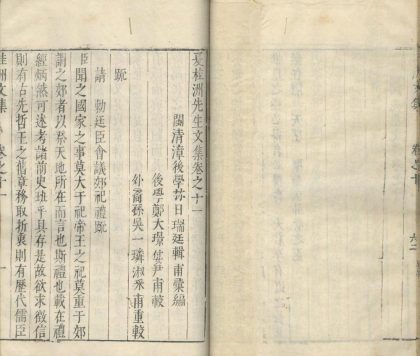 夏桂洲先生文集卷之十一
閩清漳後學林日瑞廷輯甫彙編
後學鄭大璟
甫較
外裔孫吳一璘淑
甫重較
疏
請勅廷臣會議郊祀禮疏
臣聞之國家之事莫大于祀帝王之祀莫重于郊
謂之郊者以祭天地所在而言也斯禮也載在禮
經炳然可述考諸前史班乎具存是故欲求徵信
則有古先哲王之舊章務取折衷則有歷代儒臣
桂洲文集
卷之十一
一